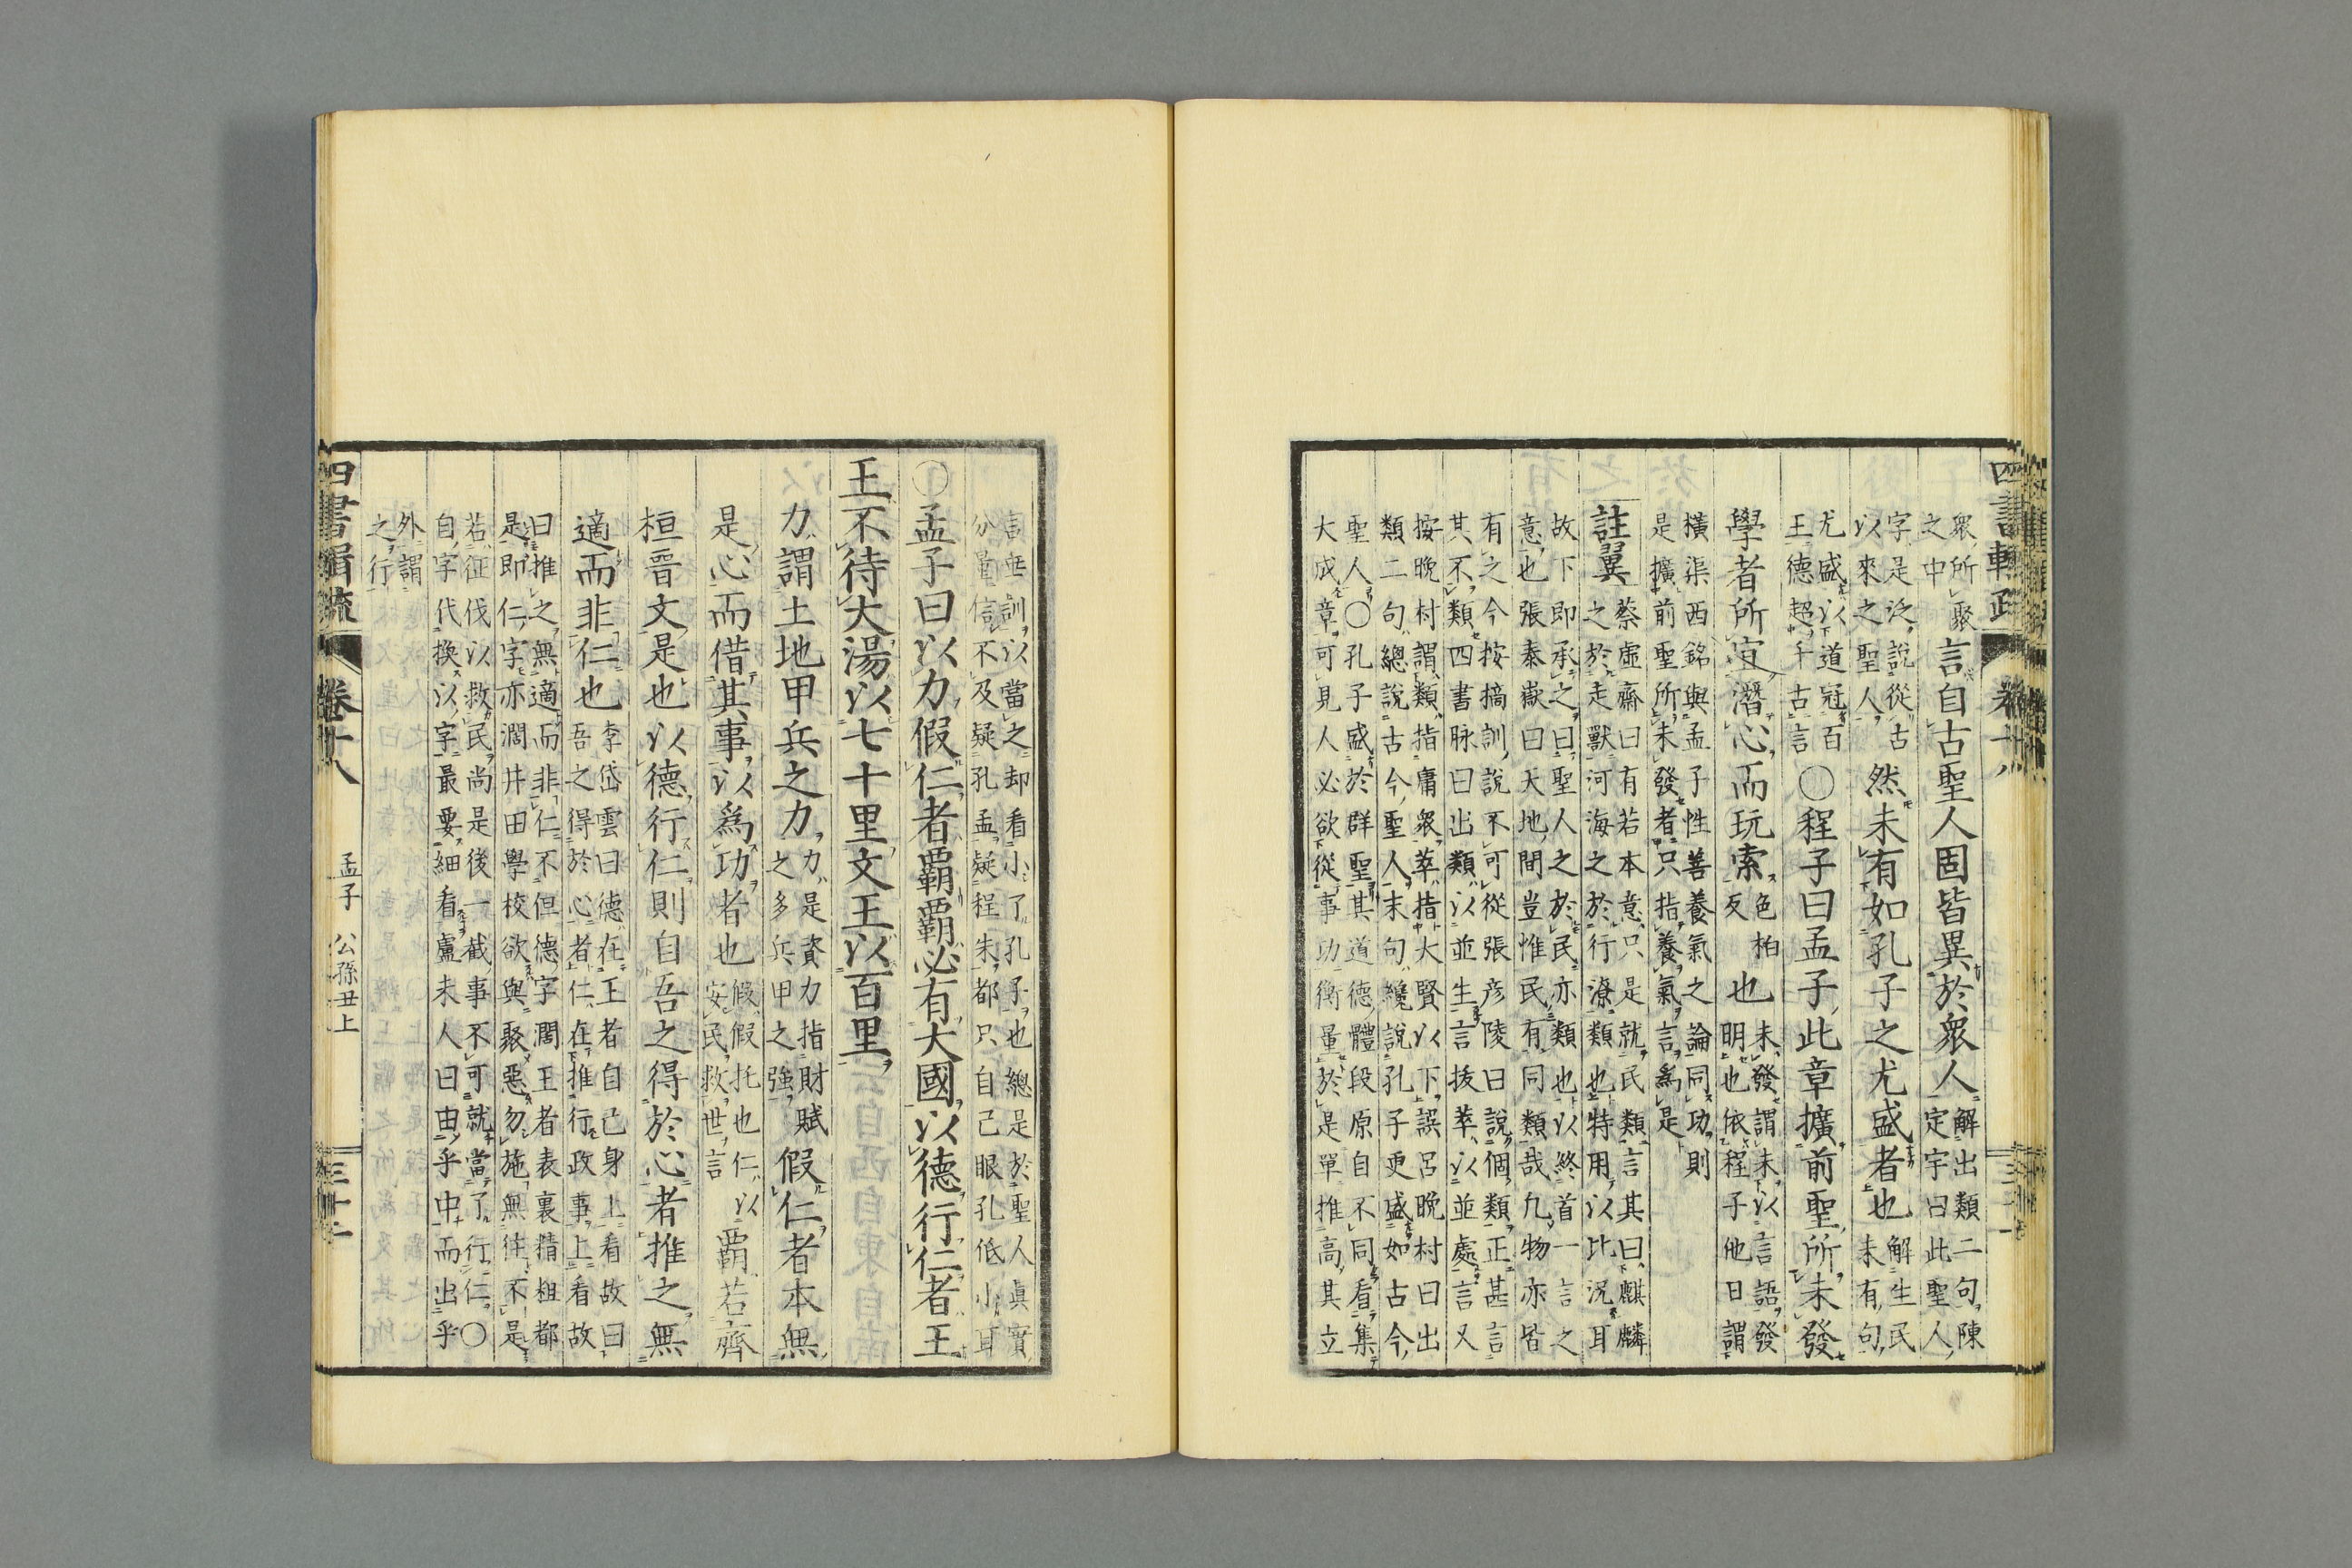 衆所聚
之中
言自古聖人固皆異於衆人
解出類二句陳
定宇曰此聖人
字是泛說從古
以來之聖人
然未有如孔子之尤盛者也
解生民
未有句
尤盛以道冠百
王德超千古言
○程子曰孟子此章擴前聖所未發
學者所宜潛心而玩索
色柏
反
也
未發謂未以言語發
明也依程子他日謂
橫渠西銘與孟子性善養氣之論同功則
是擴前聖所未發者只指養氣言爲是
註翼
蔡虛齋曰有若本意只是就民類言其曰麒麟
之於走獸河海之於行潦類也特用以比況耳
故下即承之曰聖人之於民亦類也以終首一言之
意也張泰嶽曰天地間豈惟民有同類哉凡物亦皆
有之今按摘訓說不可從張彥陵曰說個類正甚言
其不類四書脉曰出類以並生言拔萃以並處言又
按晚村謂類指庸衆萃指大賢以下誤呂晚村曰出
類二句總說古今聖人末句纔說孔子更盛如古今
聖人○孔子盛於群聖其道德體段原自不同看集
大成章可見人必欲從事功衡量於是單推高其立
四書輯疏
卷十八
言垂訓以當之却看小了孔子也總是於聖人眞實
分量信不及疑孔孟疑程朱都只自己眼孔低小耳
○孟子曰以力假仁者覇覇必有大國以德行仁者王
王不待大湯以七十里文王以百里
力謂土地甲兵之力
力是資力指財賦
之多兵甲之強
假仁者本無
是心而借其事以爲功者也
假假托也仁以
安民救世言
覇若齊
桓晋文是也以德行仁則自吾之得於心者推之無
適而非仁也
李岱雲曰德在王者自己身上看故曰
吾之得於心者仁在推行政事上看故
曰推之無適而非仁不但德字濶王者表裏精粗都
是即仁字亦濶井田學校欲與聚惡勿施無往不是
若征伐以救民尚是後一截事不可就當了行仁○
自字代換以字最要細看盧未人曰由乎中而出乎
外謂
之行
四書輯疏
卷十八
孟子
公孫丑上
三十二